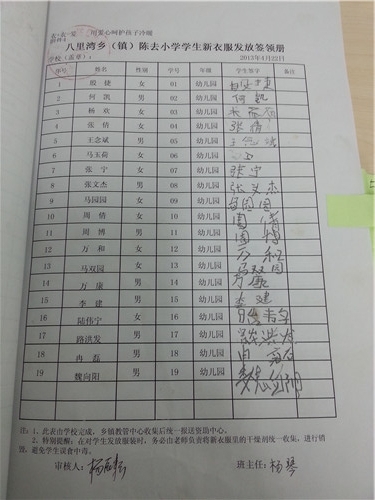 用爱心呵护孩子冷暖
八里湾乡（镇）陈去小学学生新衣服发放签领册
学校（盖章）：
2013年4月22日
序号 姓名 性别 学号 年级 学生签字 备注
1 殷捷 女 01 幼儿园
2 何凯 男 02 幼儿园 何凯
3 杨欢 女 03 幼儿园
4 张倩 女 04 幼儿园 张倩
5 王念斌 男 05 幼儿园 王念斌
6 马玉荷 女 06 幼儿园
7 张宁 女 07 幼儿园 张宁
8 张文杰 男 08 幼儿园 张文杰
9 马园园 女 09 幼儿园 马园园
10 周倩 女 10 幼儿园 周倩
11 周博 男 11 幼儿园 周博
12 万和 女 12 幼儿园 万和
13 马双园 女 13 幼儿园 马双园
14 万康 男 14 幼儿园 万康
15 李建 男 15 幼儿园 李建
16 陆伟宁 女 16 幼儿园
17 路洪发 男 17 幼儿园
18 冉磊 男 18 幼儿园
19 魏向阳 男 19 幼儿园
注：1、此表由学校完成，乡镇教管中心收集后统一报送资助中心。
2、特别提醒：在对学生发放服装时，务必由老师负责将新衣服里的干燥剂统一收集，进行销
毁，避免学生误食中毒。
审核人： 班主任：杨琴